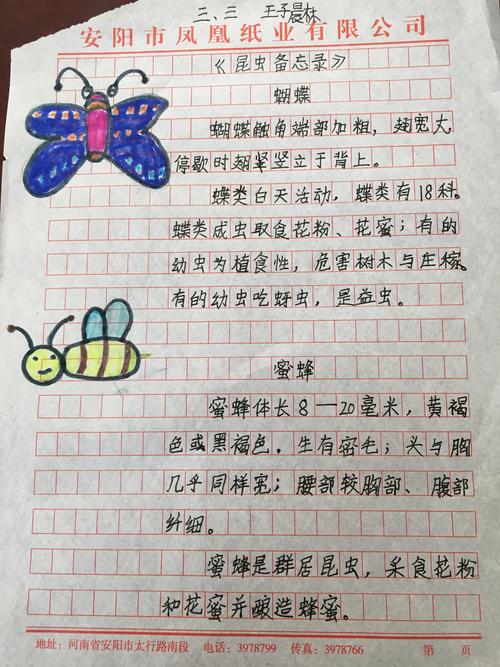 三、三 王予晨林
安阳市凤凰纸业有限公司
《昆虫备忘录》
蝴蝶
蝴蝶触角端部加粗，翅宽大，
停歇时翅竖竖立于背上。
蝶类白天活动，蝶类有18科。
蝶类成虫取食花粉、花蜜；有的
幼虫为植食性，危害树木与庄稼。
有的幼虫吃蚜虫，是益虫。
蜜蜂
蜜蜂体长8—20毫米，黄褐
色或黑褐色。生有密毛；头与胸
几乎同样宽；腰部较胸部、腹部
纤细。
蜜蜂是群居昆虫，采食花粉
和花蜜并酿造蜂蜜。
地址：河南省安阳市太行路南段 电话：3978799 传真：3978766 第 页